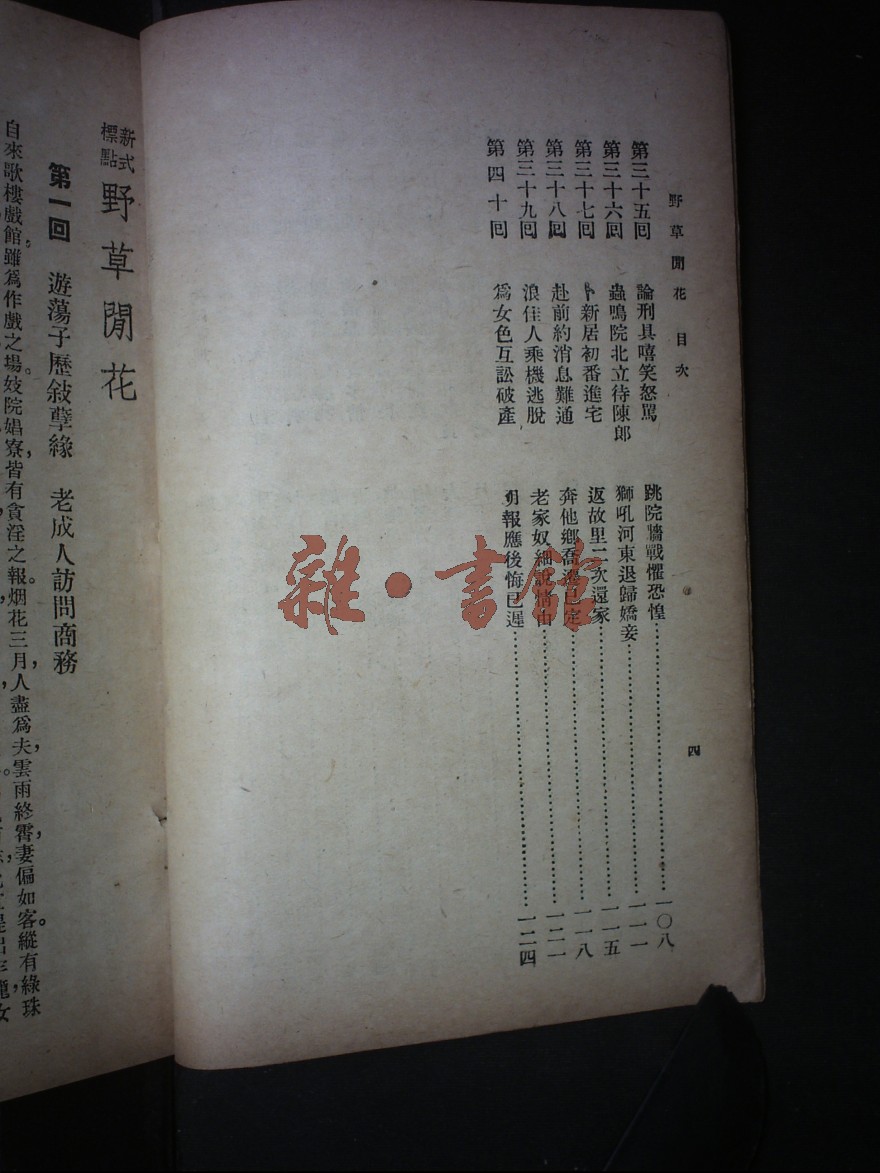 野草閒花 目次 四
第三十五回 論刑具嘻笑怒罵 跳院牆戰懼恐惶……一〇八
第三十六回 蟲鳴院北立待陳郎 獅吼河東退歸嬌妾……一一一
第三十七回 卜新居初番進宅 返故里二次還家……一一五
第三十八回 赴前約消息難通 奔他鄉喬遷已定……一一八
第三十九回 浪佳人乘機逃脫 老家奴細說情由……一二一
第四十回 爲女色互訟破產 報應後悔已遲……一二四
新式標點 野草閒花
第一回 遊蕩子歷敍孽緣 老成人訪問商務
自來歌樓戲館，雖爲作戲之場。妓院娼寮，皆有貪淫之報。烟花三月，人盡爲夫，雲雨終霄，妻偏如客。縱有綠珠
雜·書館